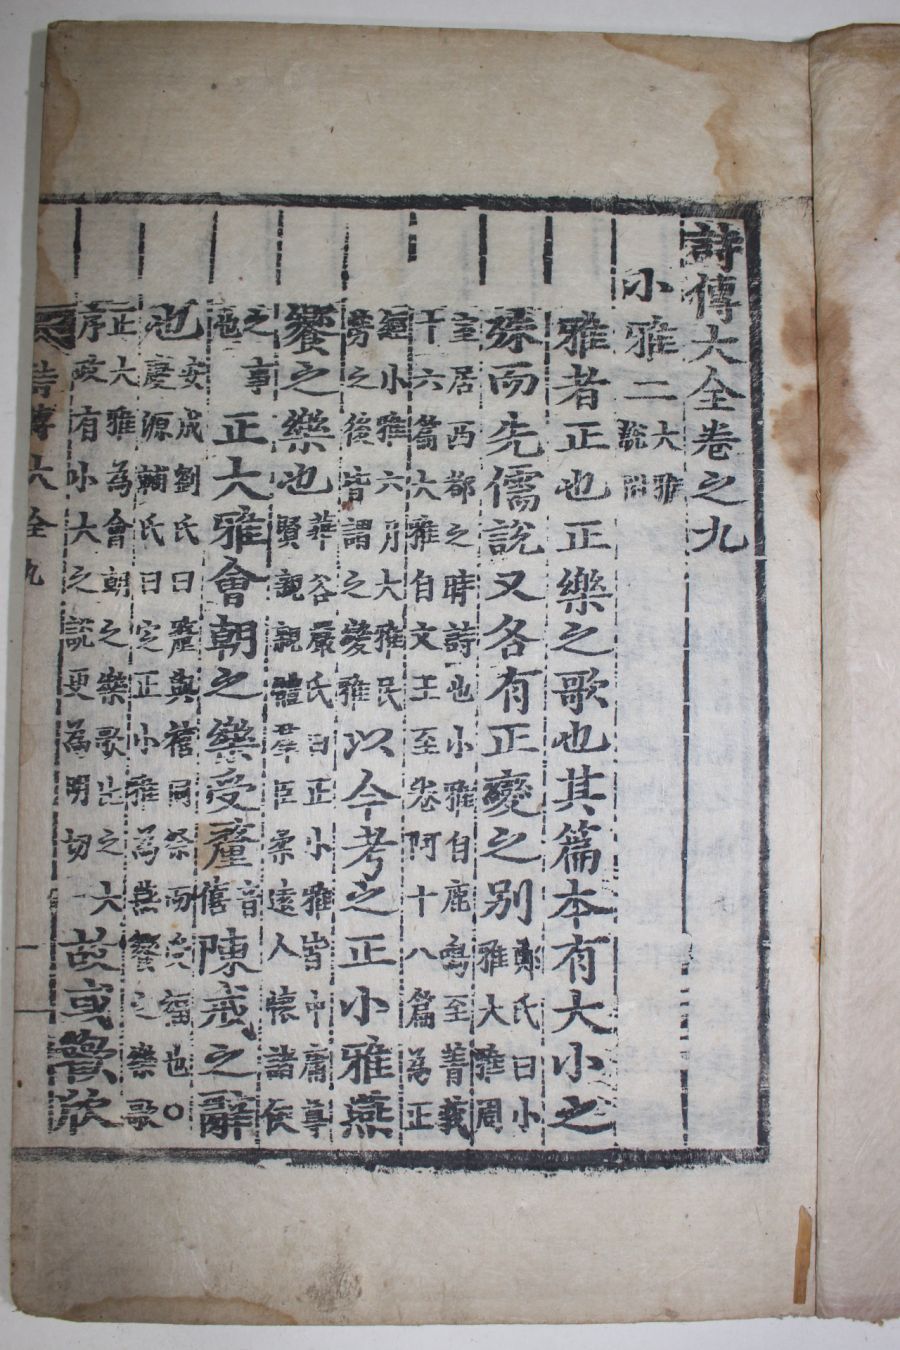 詩傳大全卷之九
小雅二大雅說附
雅者正也正樂之歌也其篇本有大小之
殊而先儒說又各有正變之別鄭氏曰小雅大雅周
室居西都之時詩也小雅自鹿鳴至菁莪十六篇大雅自文王至卷阿十八篇為正
經小雅六月大雅民勞之後皆謂之變雅以今考之正小雅燕
饗之樂也華谷嚴氏曰正小雅皆中庸尊賢親親體羣臣柔遠人懷諸侯
之事也正大雅會朝之樂受釐音僖陳戒之辭
也安成劉氏曰釐與禧同祭而受福也○慶源輔氏曰定正小雅為燕饗之樂歌
正大雅為會朝之樂歌比之大序政有小大之說更為明切故或歡欣
詩傳大全九